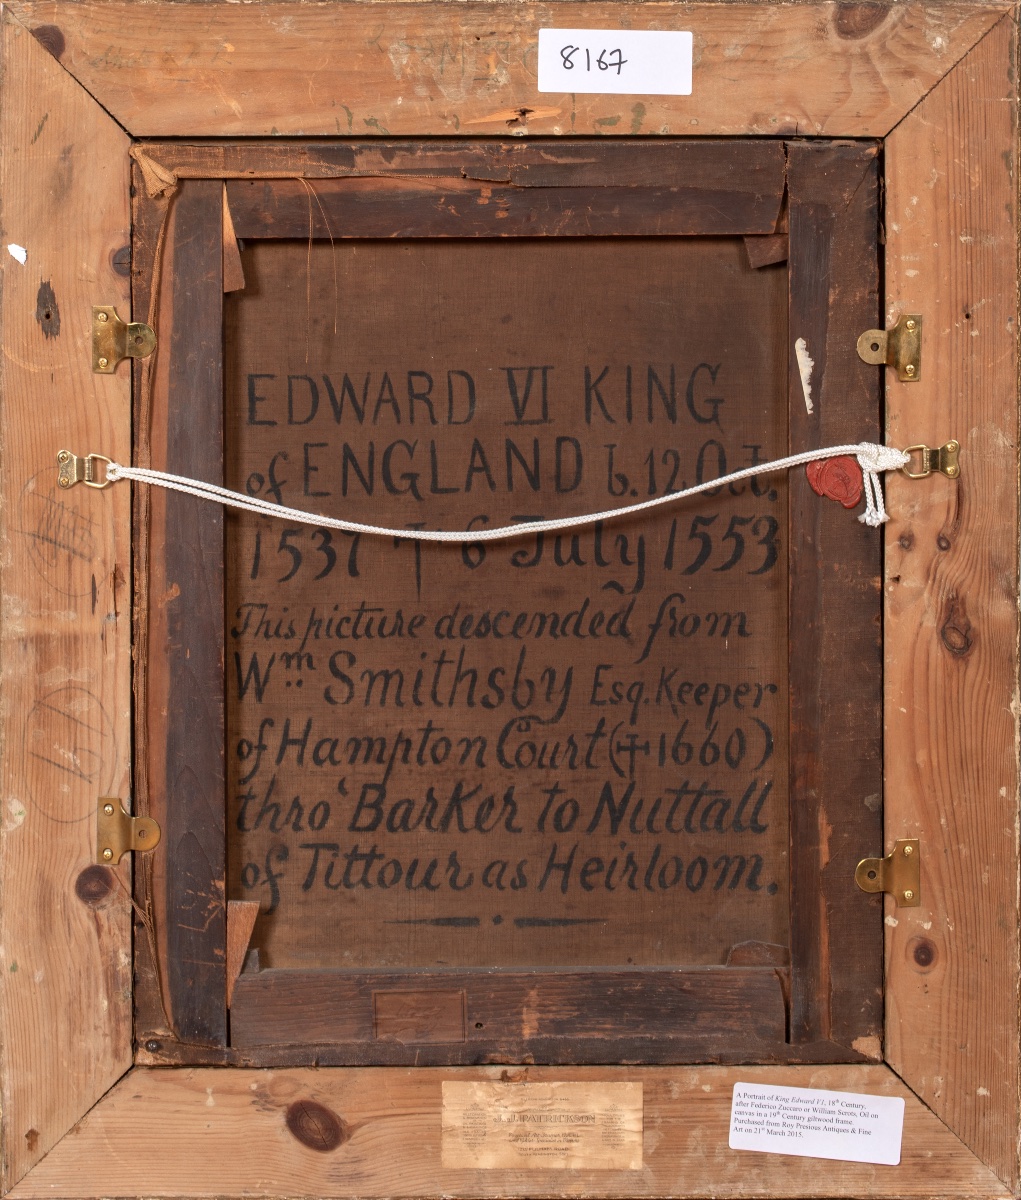 8167
EDWARD VI KING
of ENGLAND b. 12. Oct.
1537 † 6 July 1553
This picture descended from
Wm Smithsby Esq. Keeper
of Hampton Court († 1660)
thro' Barker to Nuttall
of Tittour as Heirloom.
J. J. PATRICKSON
A Portrait of King Edward VI, 18th Century,
after Federico Zuccaro or William Scrots, Oil on
canvas in a 19th Century giltwood frame.
Purchased from Roy Precious Antiques & Fine
Art on 21st March 2015.